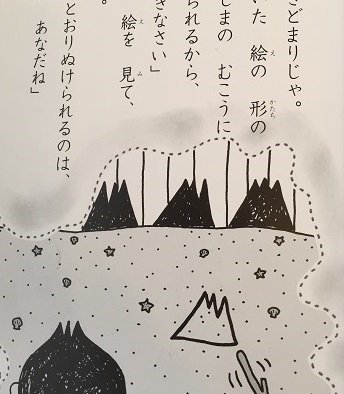 きどまりじゃ。
いた 絵の 形の
しまの むこうに
られるから、
きなさい」
絵を 見て、
。
とおりぬけられるのは、
あなだね」